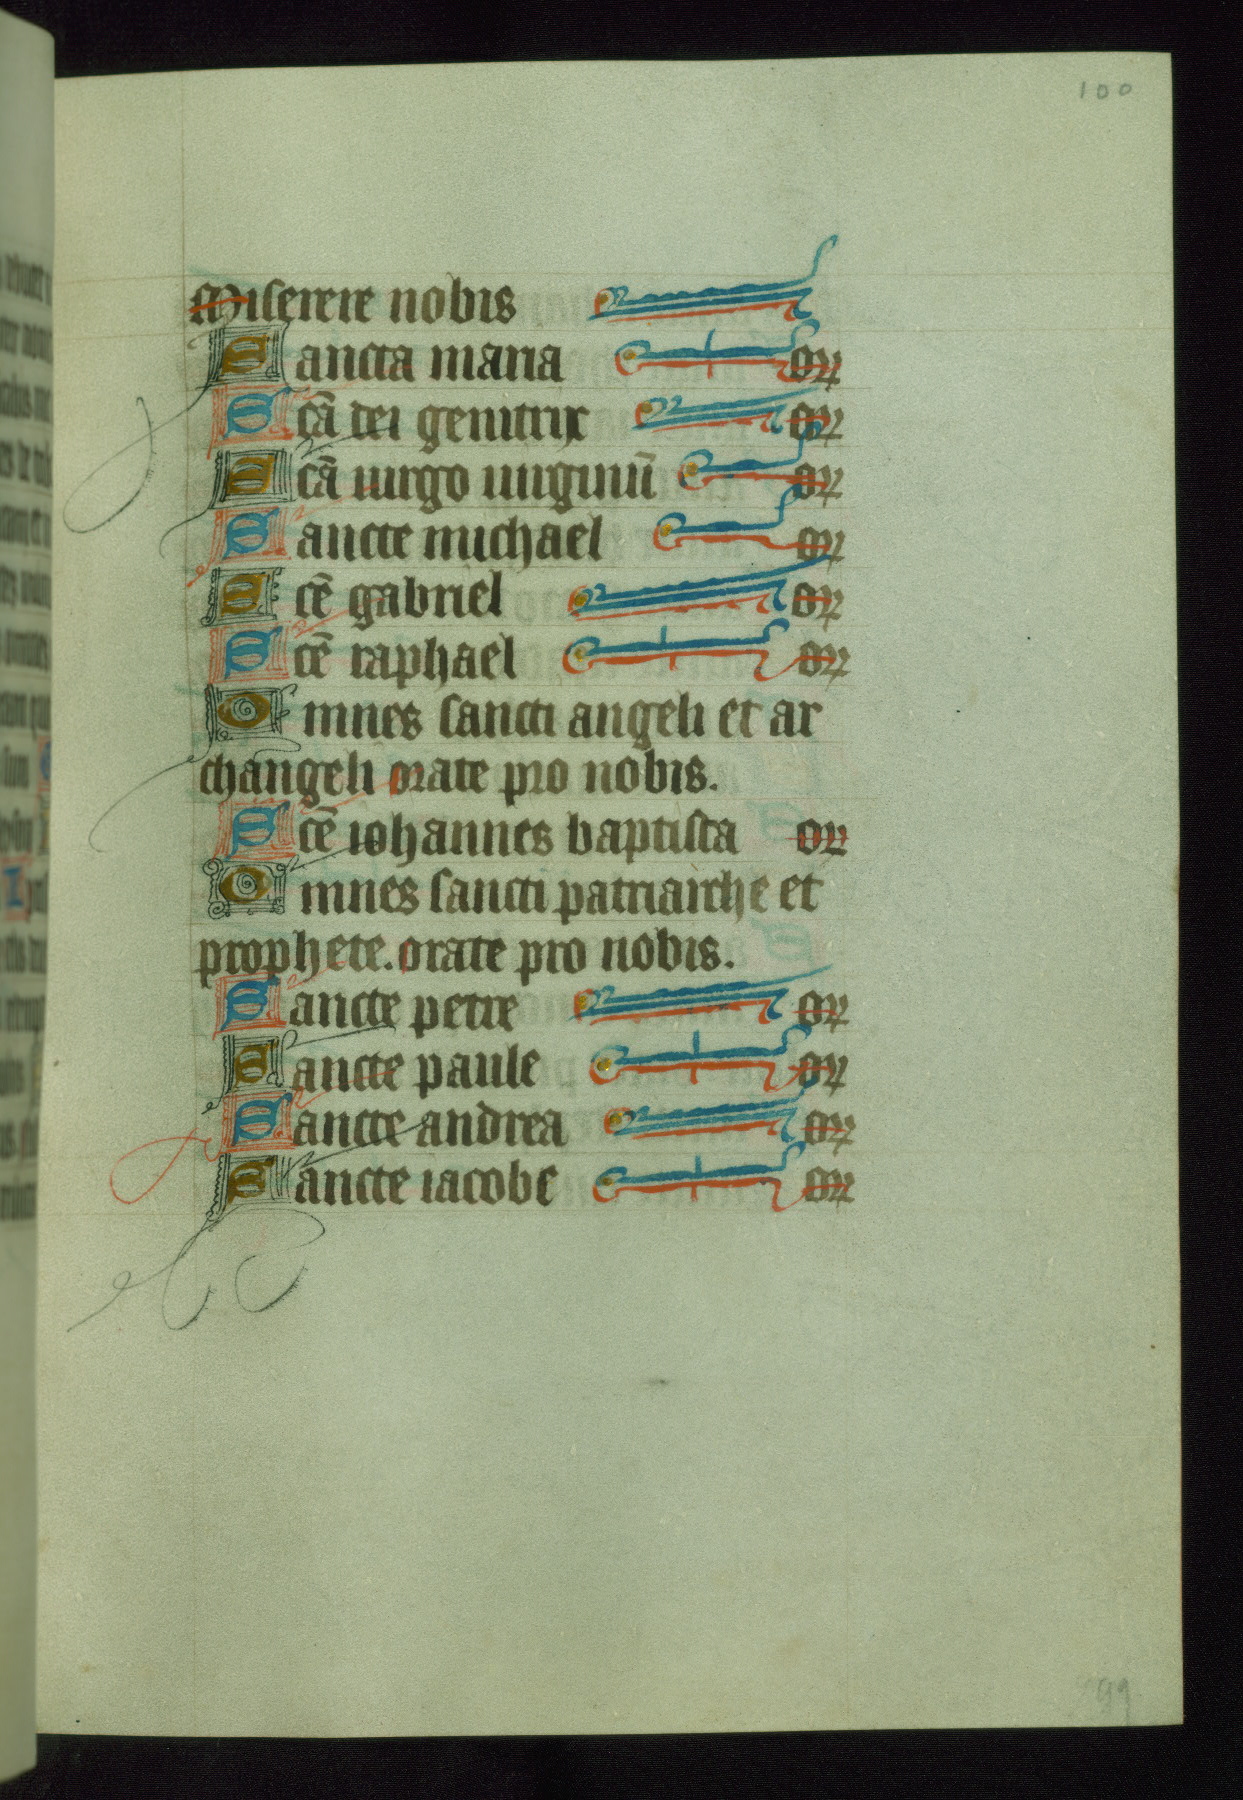 100
Miserere nobis
Sancta maria or
Scā dei genitrix or
Scā uirgo uirginū or
Sancte michael or
Scē gabriel or
Scē raphael or
Omnes sancti angeli et ar
changeli orate pro nobis.
Scē iohannes baptista or
Omnes sancti patriarche et
prophete. orate pro nobis.
Sancte petre or
Sancte paule or
Sancte andrea or
Sancte iacobe or
99